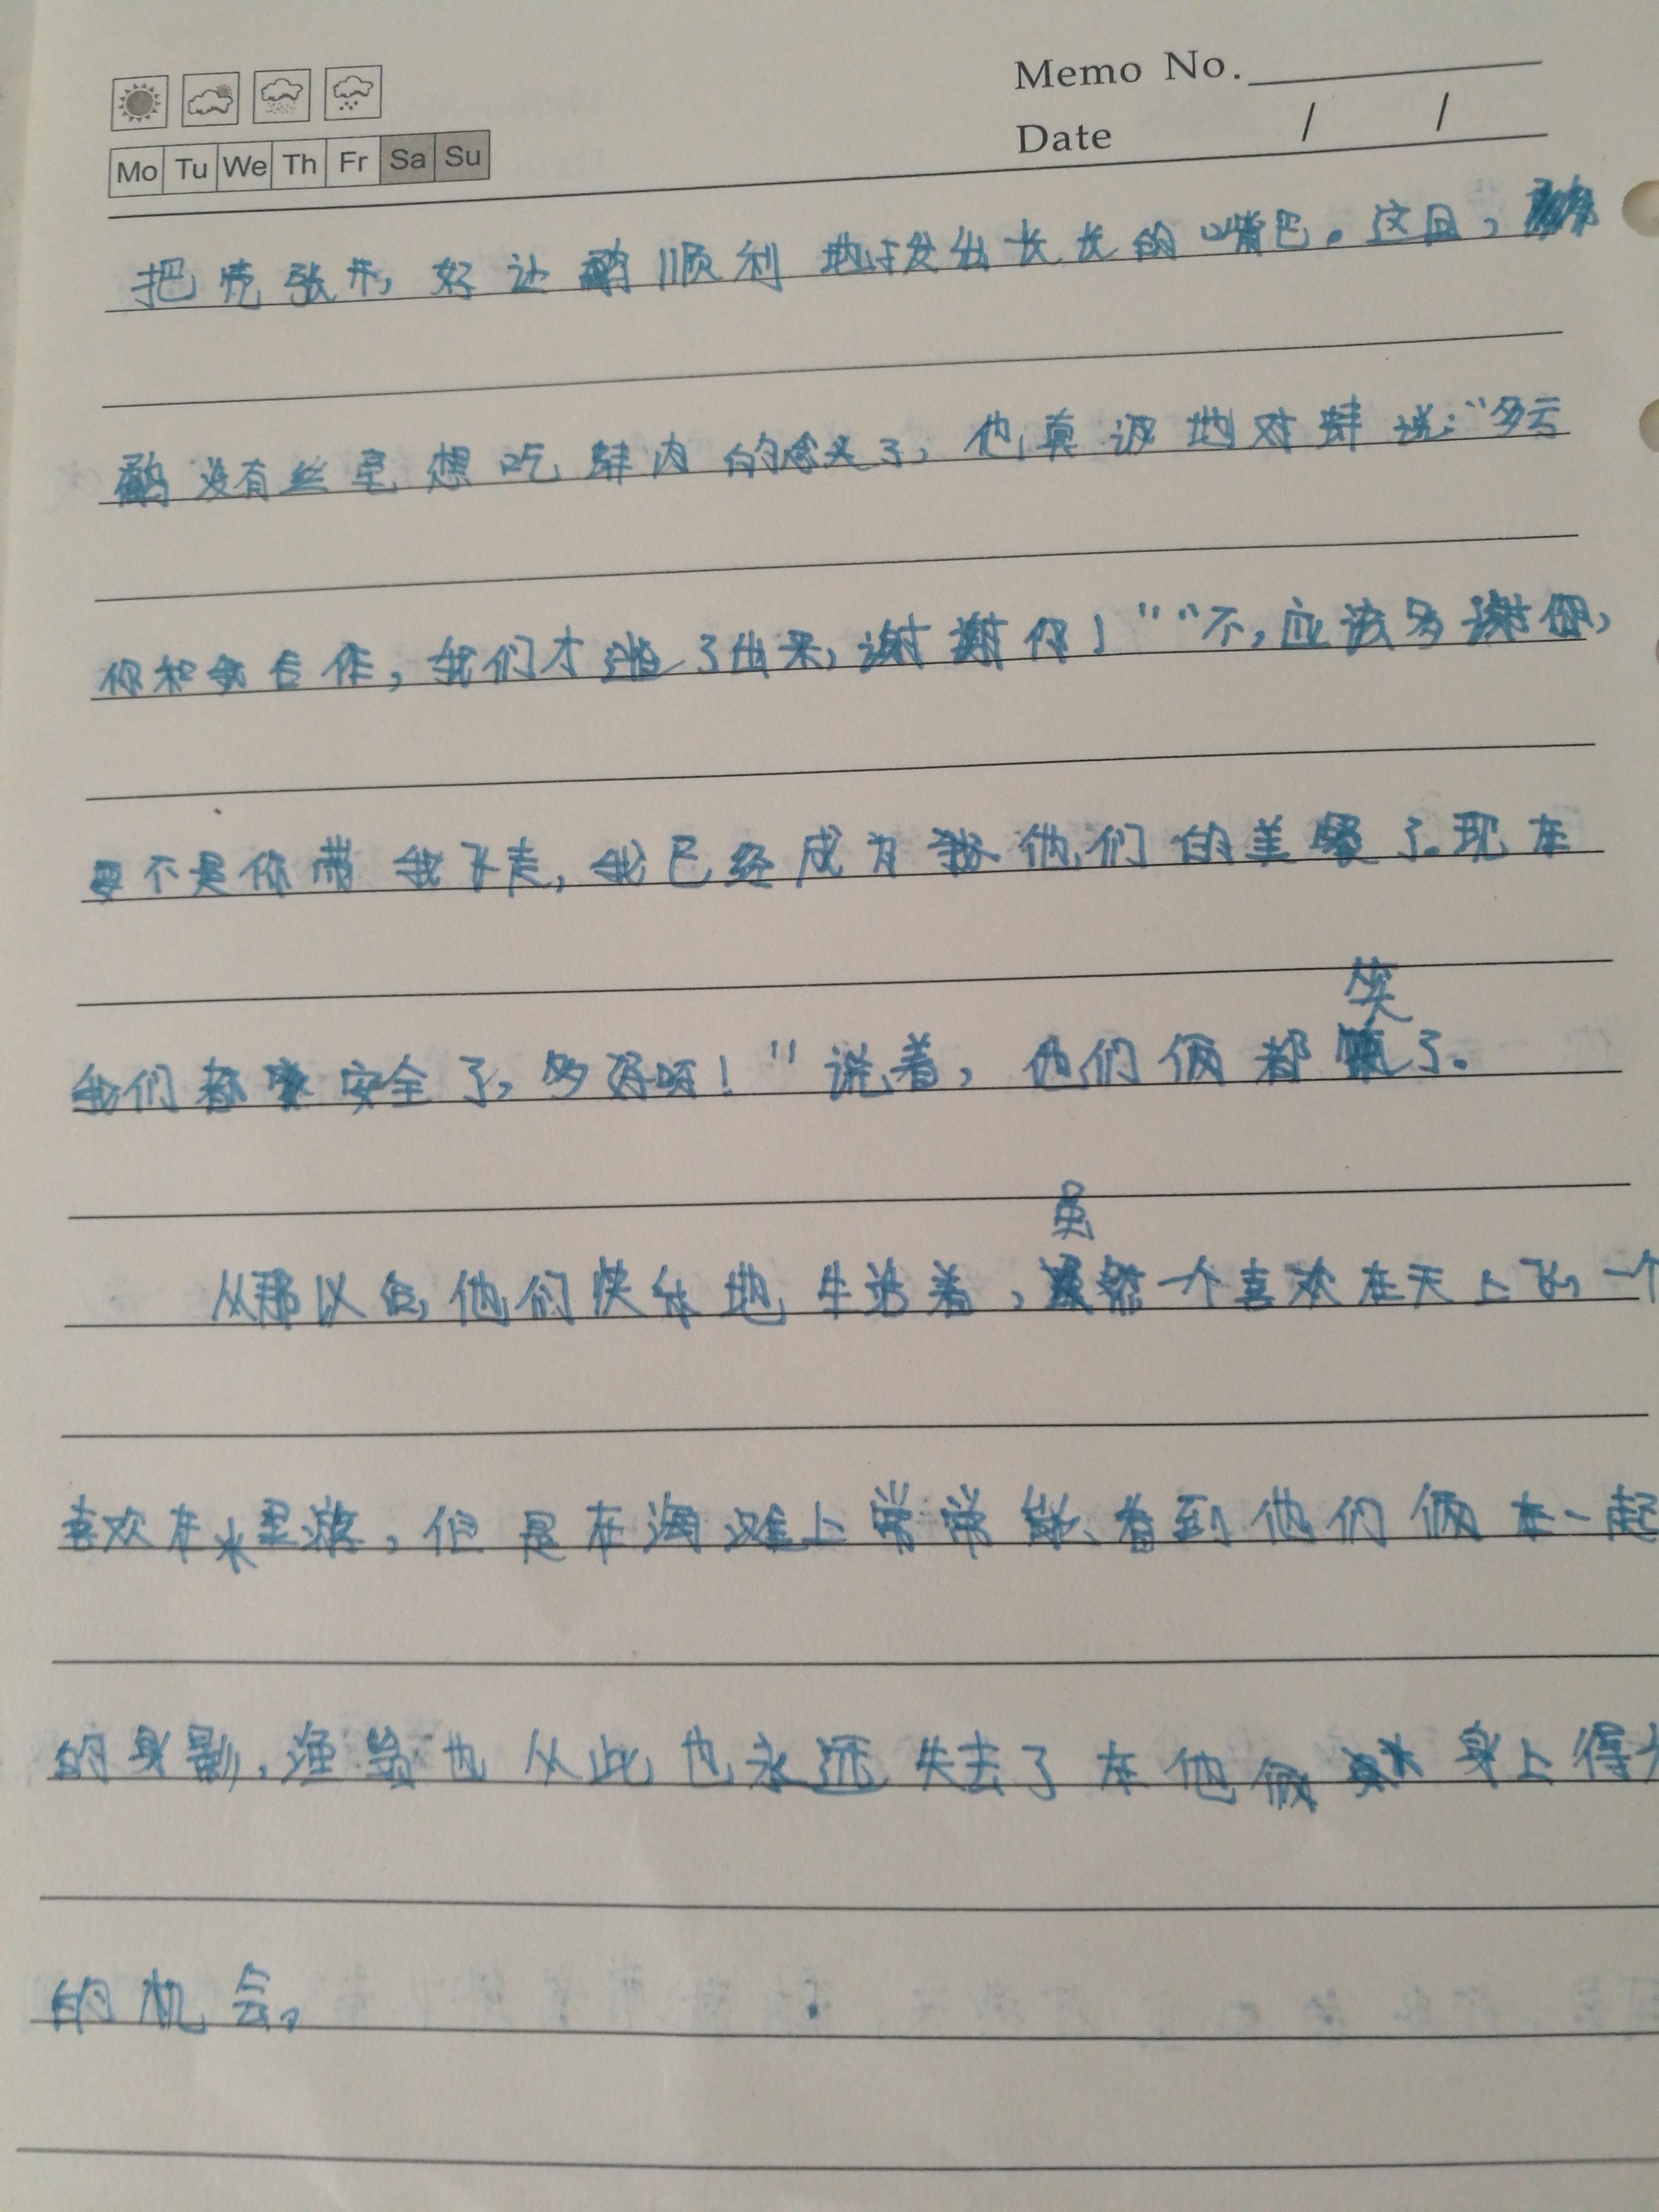 Memo No.
Mo Tu We Th Fr Sa Su
Date / /
把壳张开,好让鹬顺利地拔出长长的嘴巴。这回,
鹬没有丝毫想吃蚌肉的念头了,他真诚地对蚌说:“多亏
你和我合作,我们才逃了出来,谢谢你!”“不,应该多谢你,
要不是你带我飞走,我已经成为他们的美餐了。现在
笑
我们都安全了,多好呀!”说着,他们俩都了。
虽
从那以后,他们快乐地生活着,然一个喜欢在天上飞,一个
喜欢在水里游,但是在海滩上常常能看到他们俩在一起
的身影,渔翁也从此也永远失去了在他俩身上得
的机会。